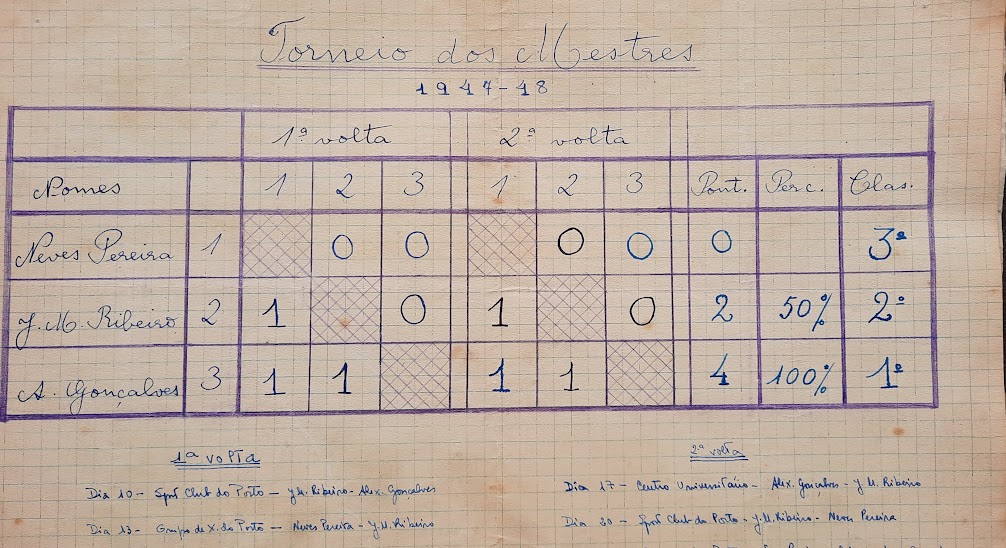 Torneio dos Mestres
1947-48
1ª volta 2ª volta
Nomes 1 2 3 1 2 3 Pont. Perc. Clas.
Neves Pereira 1 0 0 0 0 0 3º
J. M. Ribeiro 2 1 0 1 0 2 50% 2º
A. Gonçalves 3 1 1 1 1 4 100% 1º
1ª VOLTA
Dia 10 - Sport Club do Porto - J. M. Ribeiro - Alex. Gonçalves
Dia 13 - Grupo de X. do Porto - Neves Pereira - J. M. Ribeiro
2ª volta
Dia 17 - Centro Universitário - Alex. Gonçalves - J. M. Ribeiro
Dia 20 - Sport Club do Porto - J. M. Ribeiro - Neves Pereira